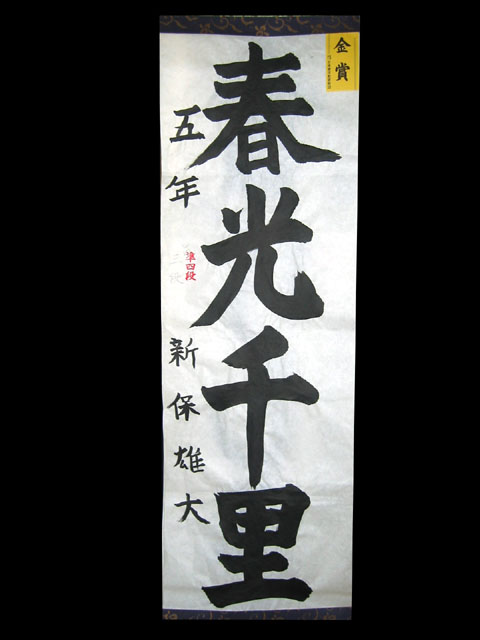 金賞
春光千里
五年
準四段
三段
新保雄大